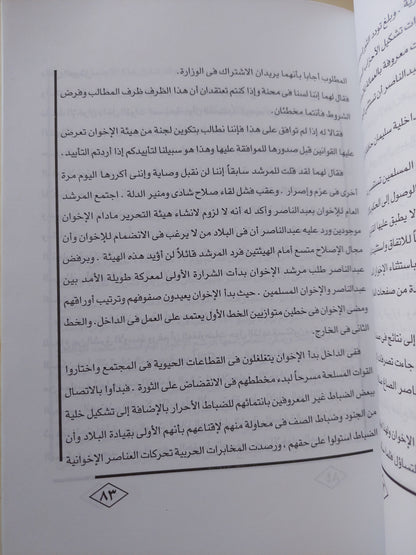 المطلوب اجابا بأنهما يريدان الاشتراك فى الوزارة.
فقال لهما إننا لسنا فى محنة وإذا كنتم تعتقدان أن هذا الظرف ظرف المطالب وفرض
الشروط فأنتما مخطئان.
فقالا له إذا لم توافق على هذا فإننا نطالب بتكوين لجنة من هيئة الإخوان تعرض
عليها القوانين قبل صدورها للموافقة عليها وهذا هو سبيلنا لتأييدكم إذا أردتم التأييد.
فقال لهما لقد قلت للمرشد سابقاً إننا لن نقبل وصاية وإننى أكررها اليوم مرة
أخرى فى عزم وإصرار. وعقب فشل لقاء صلاح شادى ومنير الدلة. اجتمع المرشد
العام للإخوان بعبدالناصر وأكد له أنه لا لزوم لانشاء هيئة التحرير مادام الإخوان
موجودين ورد عليه عبدالناصر أن فى البلاد من لا يرغب فى الانضمام للإخوان وأن
مجال الإصلاح متسع أمام الهيئتين فرد المرشد قائلاً لن أؤيد هذه الهيئة. وبرفض
عبدالناصر طلب مرشد الإخوان بدأت الشرارة الأولى لمعركة طويلة الأمد بين
عبدالناصر والإخوان المسلمين. حيث بدأ الإخوان يعيدون صفوفهم وترتيب أوراقهم
ومضى الإخوان فى خطين متوازيين الخط الأول يعتمد على العمل فى الداخل. والخط
الثانى فى الخارج.
ففى الداخل بدأ الإخوان يتغلغلون فى القطاعات الحيوية فى المجتمع واختاروا
القوات المسلحة مسرحاً لبدء مخططهم فى الانقضاض على الثورة. فبدأوا بالاتصال
ببعض الضباط غير المعروفين بانتمائهم للضباط الأحرار بالإضافة إلى تشكيل خلية
من الجنود وضباط الصف فى محاولة منهم لإقناعهم بأنهم الأولى بقيادة البلاد وأن
الضباط استولوا على حقهم. ورصدت المخابرات الحربية تحركات العناصر الإخوانية
٨٣